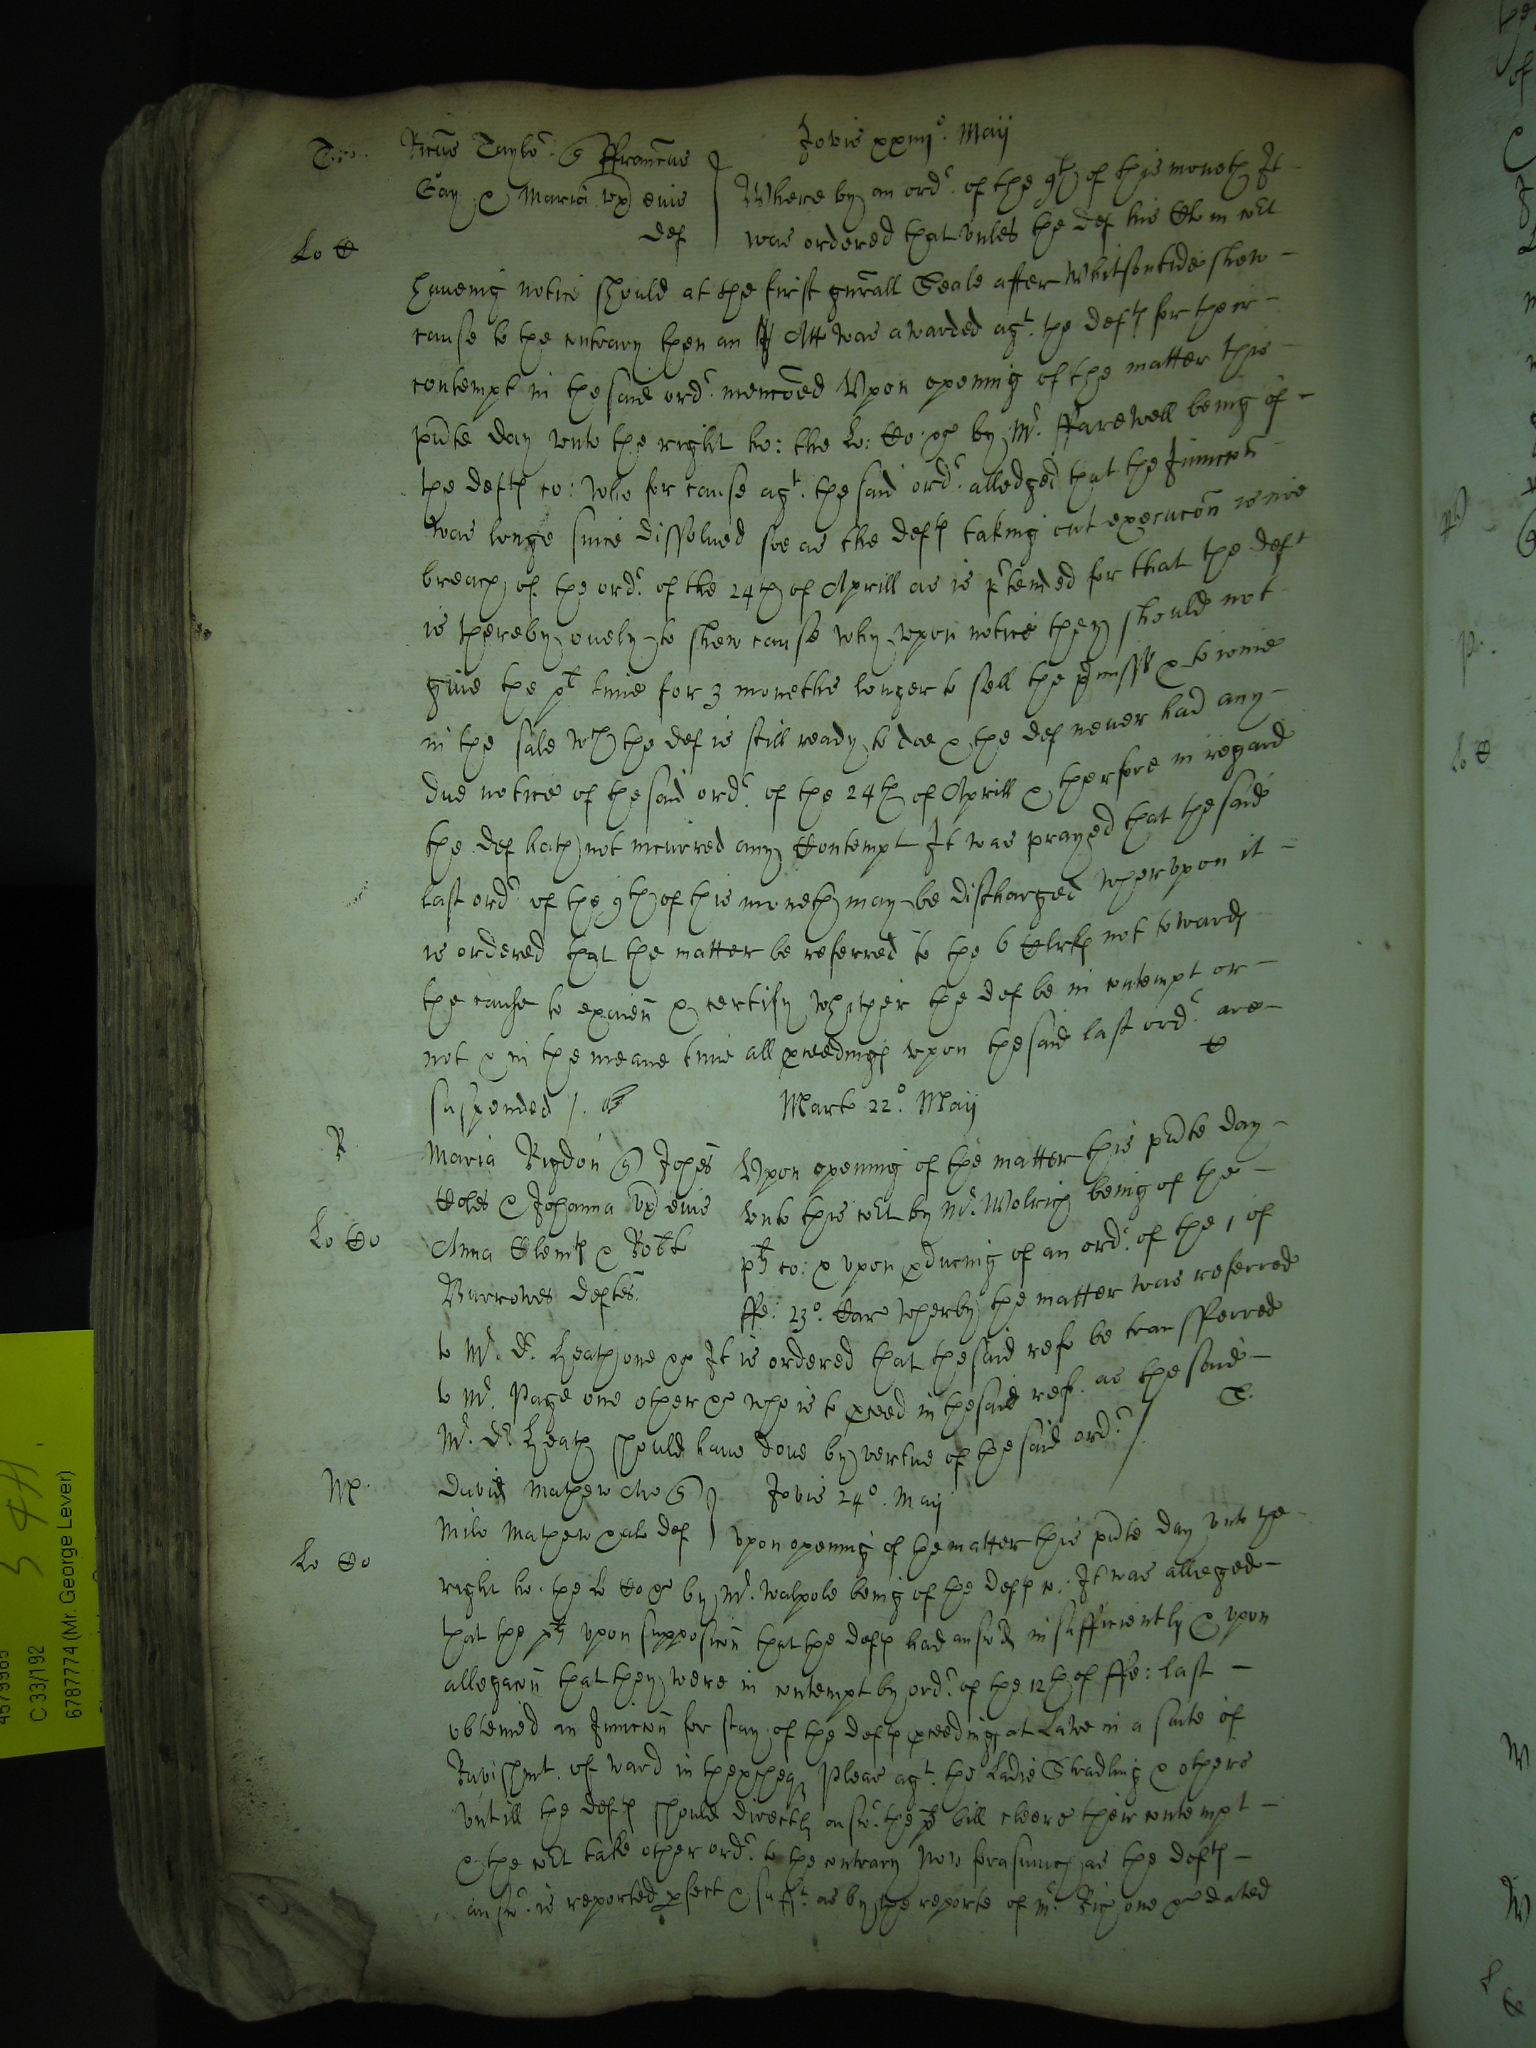 Jovis xxiiij°. Maij
Ricus Taylor q ffranciscus
Gay & Maria ux eius
def
Where by an ordr. of the 9th of this moneth It
was ordered that unles the def his Clr in cort
Lo C
haveing notice should at the first gnrall Seale after Whitsontide shew
cause to the contrary then an Att was awarded agt. the defts for their
contempt in the said ordr. menconed Upon opening of the matter this
pnte day unto the right ho: the Lo: Co: &c by Mr. ffarewell being of
the defts co: who for cause agt. the said ordr. alledged that the Iniunccon
was longe since dissolued soe as the defts taking out execucon is noe
breach of the ordr. of the 24th of Aprill as is prtended for that the deft
is thereby onely to shew cause why upon notice they should not
give the plt time for 3 moneths longer to sell the premisss & to ioine
in the sale wch the def is still ready to doe & the def never had any
due notice of the said ordr. of the 24th of Aprill & therfore in regard
the def hath not incurred any Contempt It was prayed that the said
last ordr of the 9th of this moneth may be discharged wherupon it
is ordered that the matter be referred to the 6 Clrks not towards
the cause to examen & certify whither the def be in contempt or
not & in the meane time all pceedings upon the said last ordr are
suspended /.
C
Marts 22°. Maij
R
Maria Rigdon q Johes
Coles & Johanna ux eius
Lo Co
Anna Clemts & Robt
Burrowes deftes.
Upon opening of the matter this pnte day
unto this cort by Mr. Wolrich being of the
plts co: & upon pduceing of an ordr. of the 1 of
ffe: 23°. Car wherby the matter was referred
to Mr. Dr. Heath one &c It is ordered that the said refe be transfferred
to Mr. Page one other &c who is to pceed in the said ref. as the said
Mr. Dr Heath should have done by vertue of the said ordr /
C.
M.
David Mathew Ar q
Milo Mathew & al def
Jovis 24°. Maij
Lo Co
upon opening of the matter this pnte day unto the
right ho. the Lo Co &c by Mr. Walpole being of the defts co: It was alleged
that the plts upon supposicon that the defts had answd insufficiently & upon
allegacon that they were in contempt by ordr. of the 12th of ffe: last
obteined an Iniunccon for stay of the defts pceedings at Lawe in a suite of
Ravishmt. of ward in thexcheqr Pleas agt. the Ladie Stradling & others
untill the defts should directly answr. the plts bill cleere their contempt
& the cort take other ordr. to the contrary Now forasmuch as the defts
answr. is reported pfect & sufft. as by the reporte of Mr. Rich one &c dated
4579989
C 33/192
6787774 (Mr. George Lever)